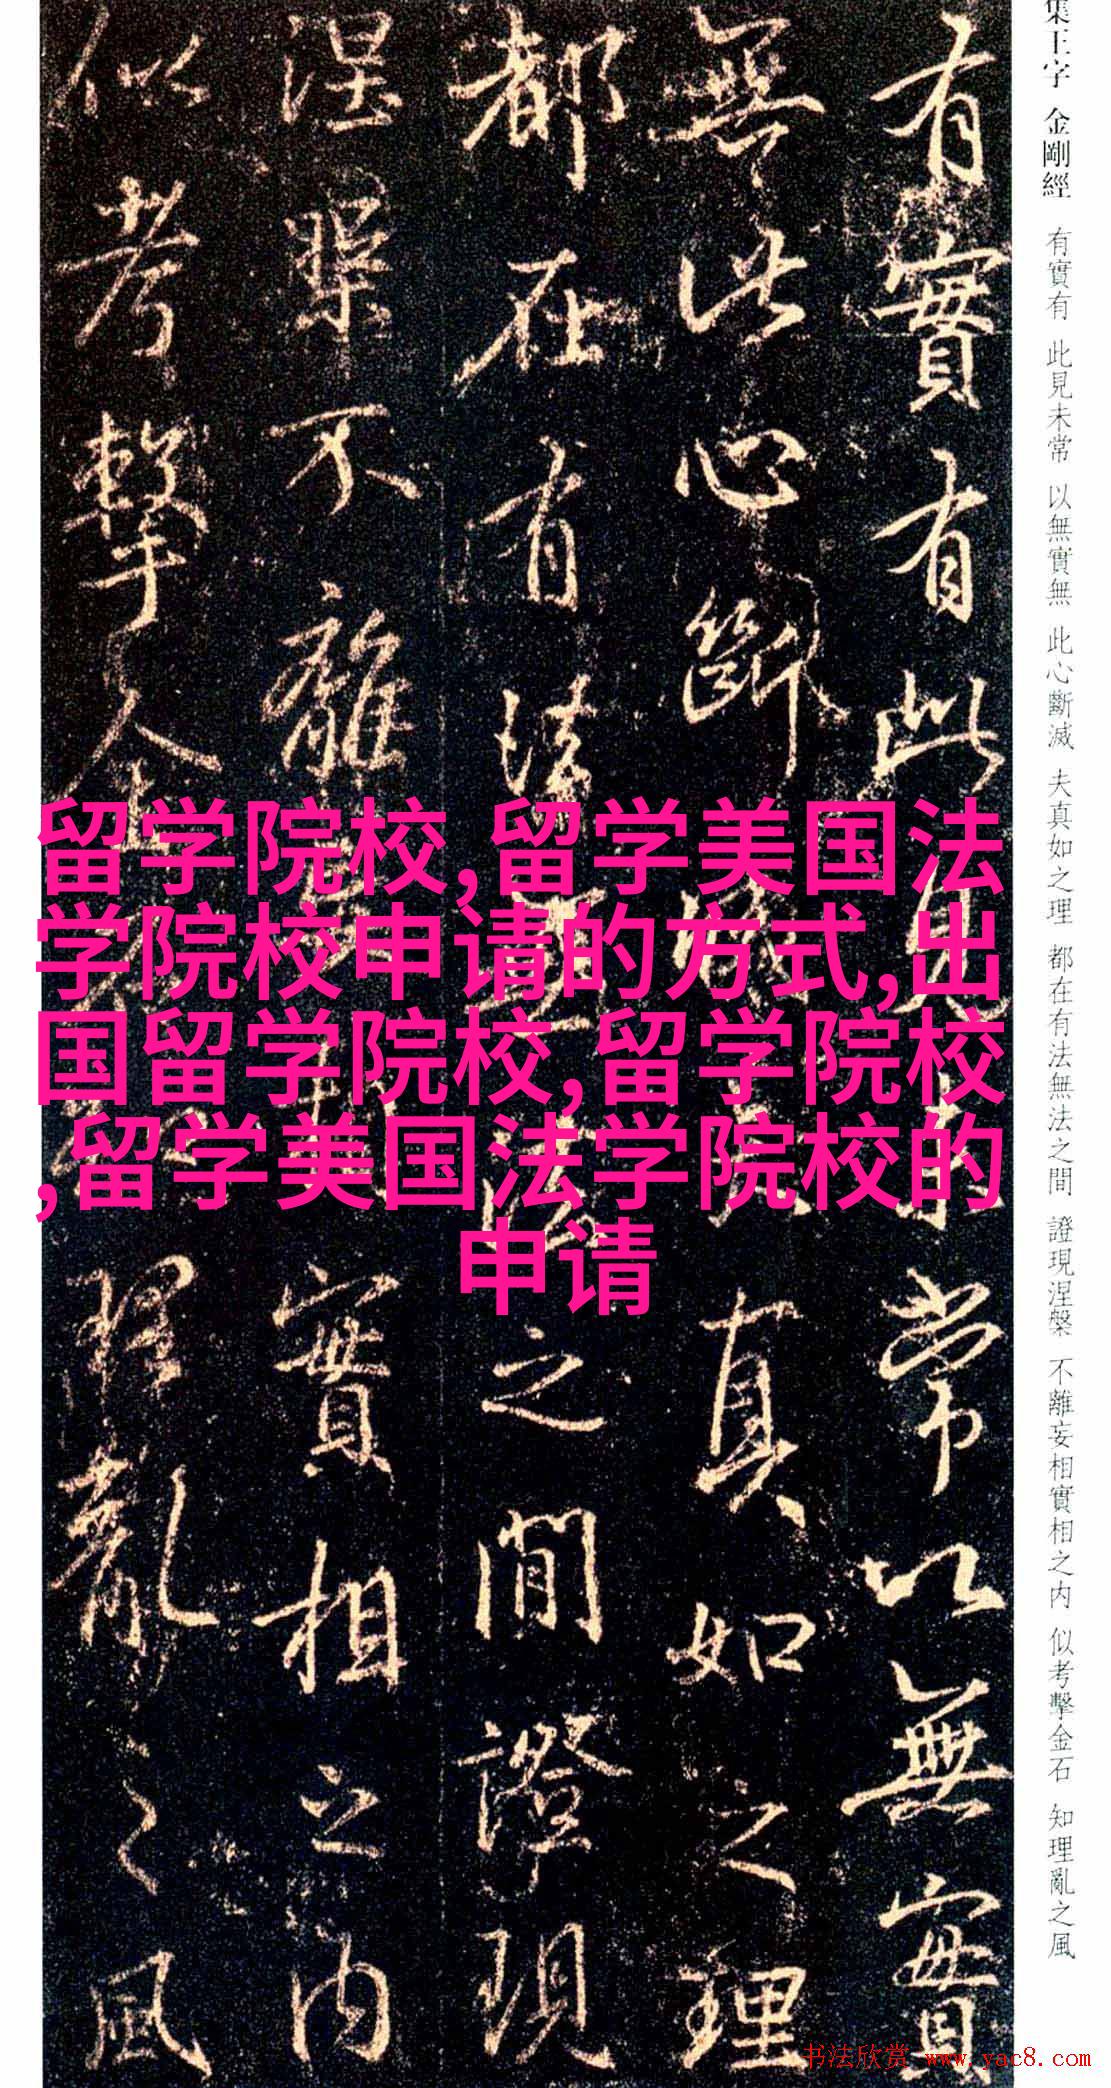 集王字 金剛經 有實有 此見未常 以無實無 此心斷滅 夫真如之理 都在有法無法之間 證現涅槃 不離妄相實相之内 似考擊金石 知理亂之風
有實有此見未常以無實
無此心斷滅夫真如之理
都在有法無法之間證現
涅槃不離妄相實相之内
似考擊金石知理亂之風
留学院校,留学美国法
学院校申请的方式,出
国留学院校,留学院校
,留学美国法学院校的
申请
书法欣赏 www.yac8.com